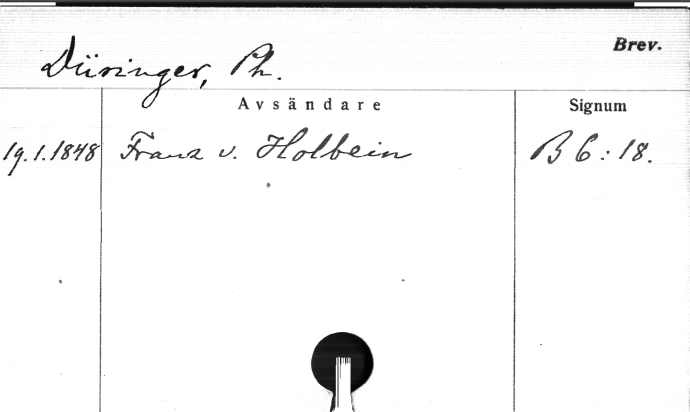 Brev.
Düringer, Ph.
Avsändare Signum
19.1.1848 Franz v. Holbein B 6:18.